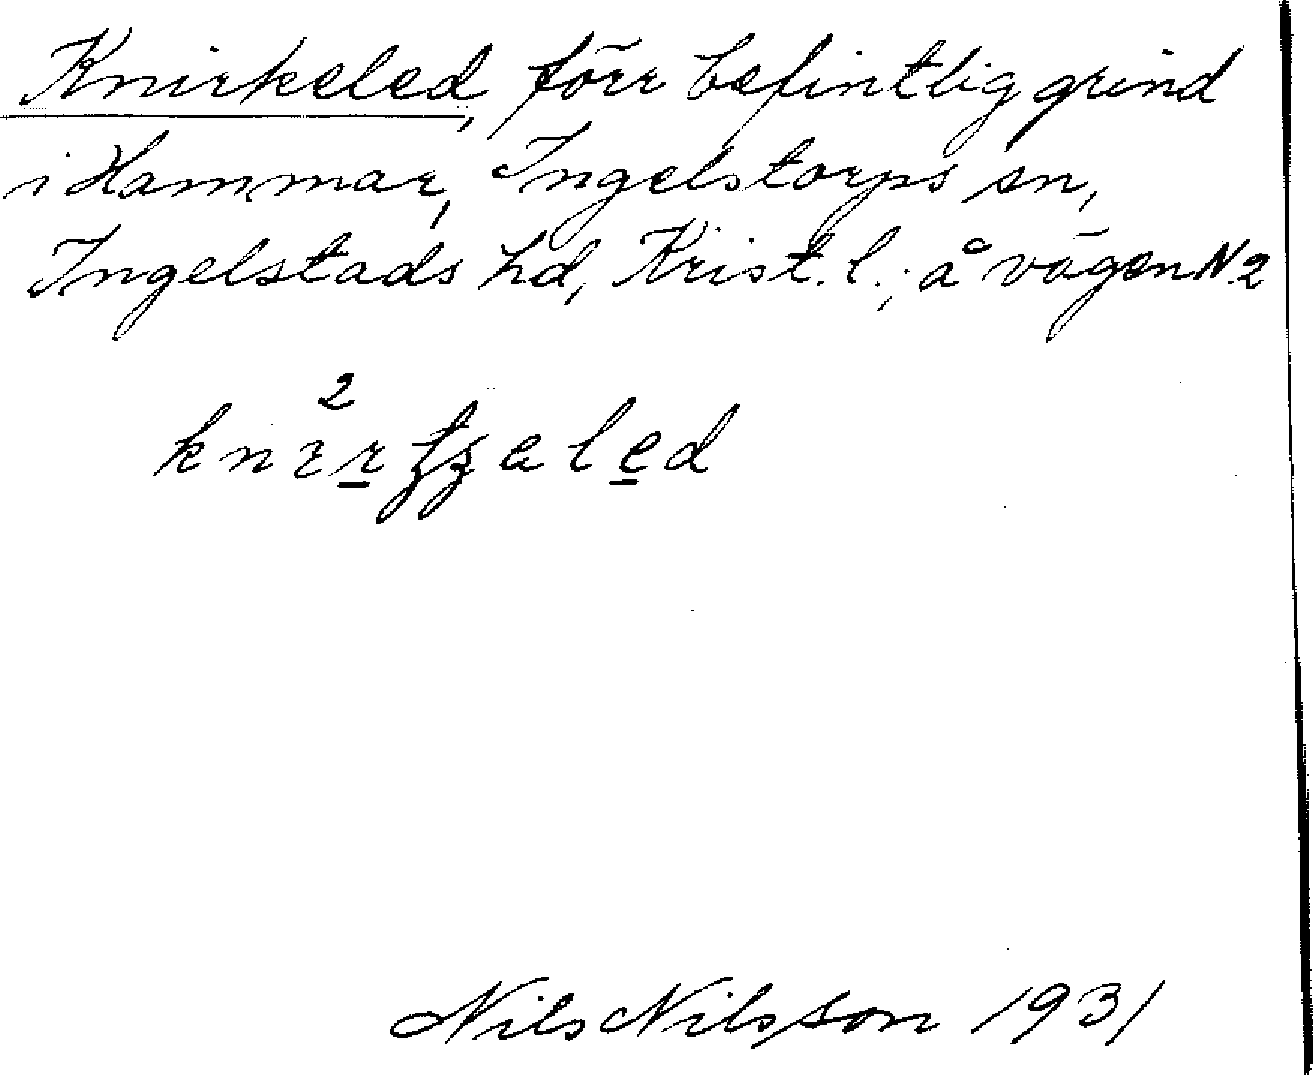 Knirkeled, förr befintlig grind
i Hammar, Ingelstorps sn,
Ingelstads hd, Krist. l.; å vägen N 2
Nils Nilsson 1931